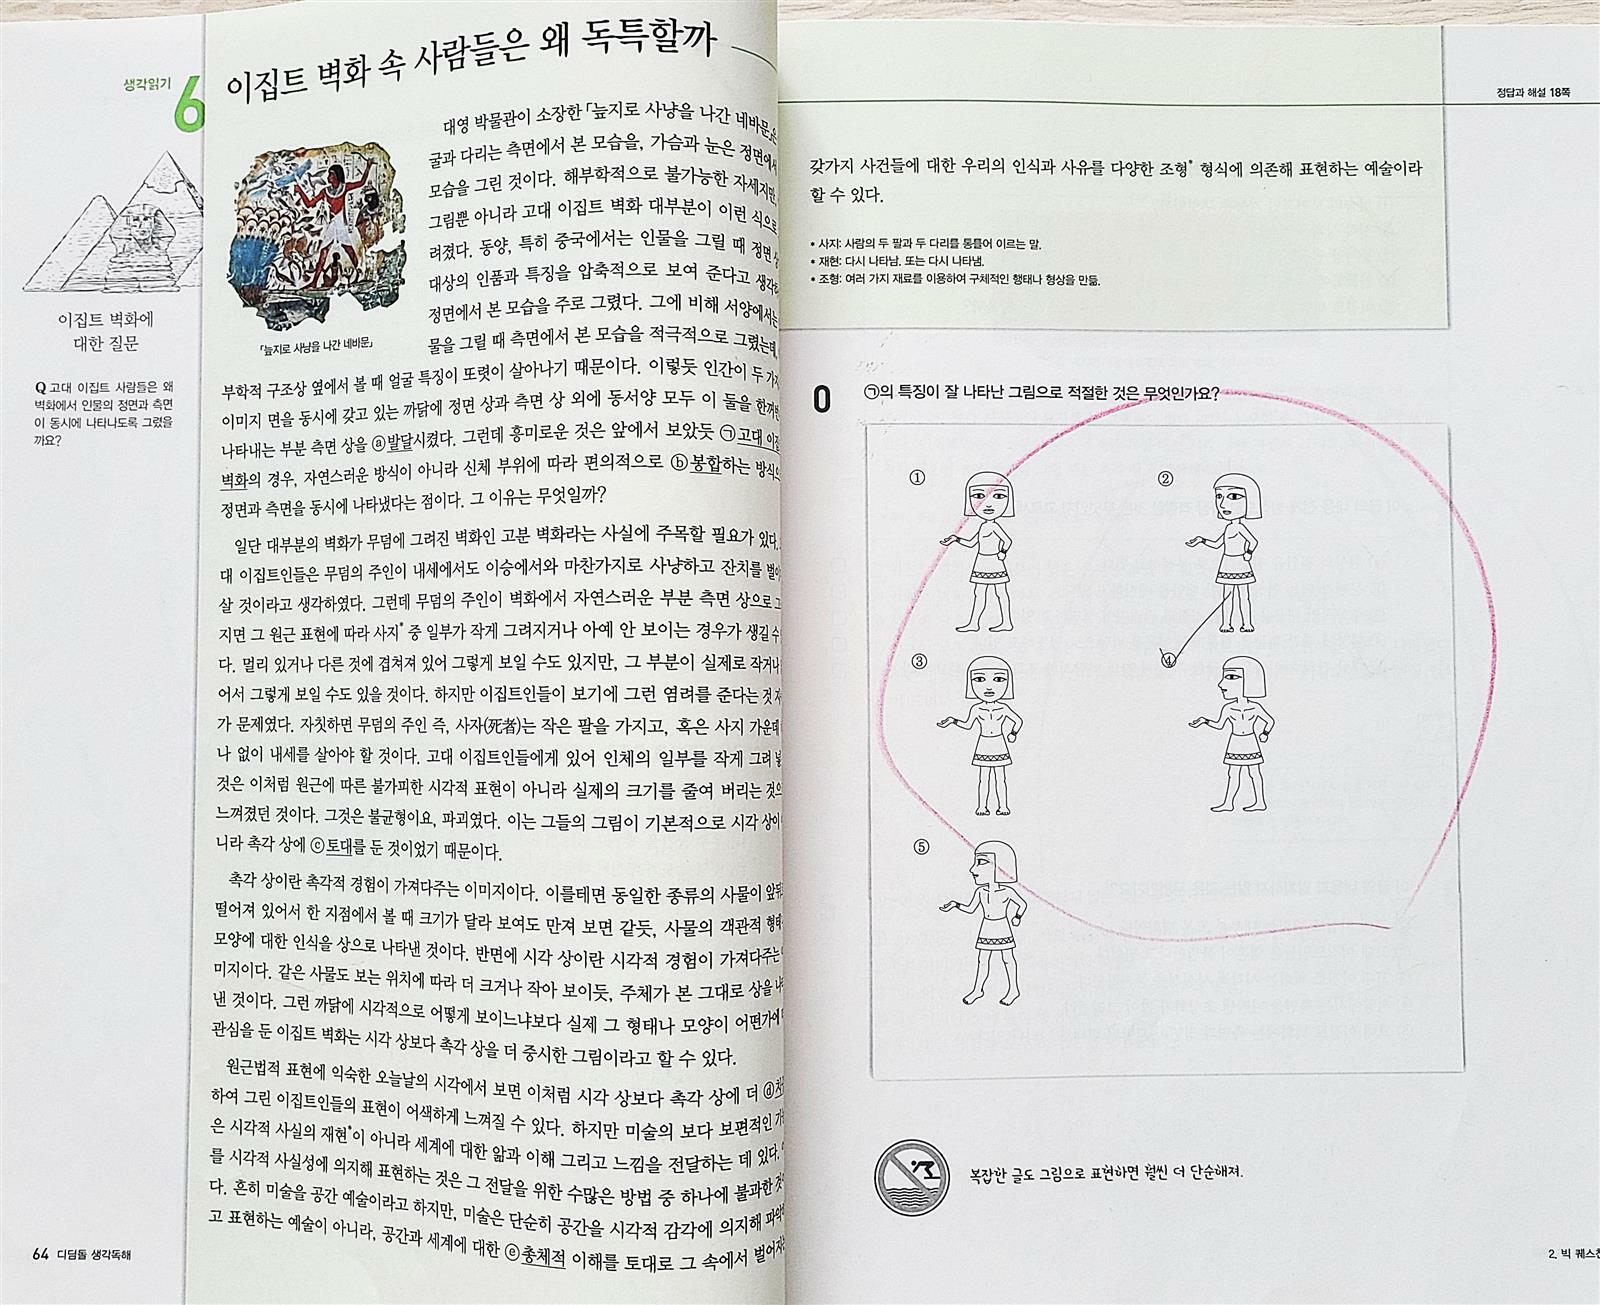 생각읽기
6
이집트 벽화에
대한 질문
Q 고대 이집트 사람들은 왜
벽화에서 인물의 정면과 측면
이 동시에 나타나도록 그렸을
까요?
64 디딤돌 생각독해
이집트 벽화 속 사람들은 왜 독특할까
「늪지로 사냥을 나간 네바문」
대영 박물관이 소장한 「늪지로 사냥을 나간 네바문」은
굴과 다리는 측면에서 본 모습을, 가슴과 눈은 정면에서
모습을 그린 것이다. 해부학적으로 불가능한 자세지만
그림뿐 아니라 고대 이집트 벽화 대부분이 이런 식으로
려졌다. 동양, 특히 중국에서는 인물을 그릴 때 정면
대상의 인품과 특징을 압축적으로 보여 준다고
정면에서 본 모습을 주로 그렸다. 그에 비해 서양에서는
물을 그릴 때 측면에서 본 모습을 적극적으로 그렸는데,
부학적 구조상 옆에서 볼 때 얼굴 특징이 또렷이 살아나기 때문이다. 이렇듯 인간이 두
이미지 면을 동시에 갖고 있는 까닭에 정면 상과 측면 상 외에 동서양 모두 이 둘을
나타내는 부분 측면 상을 ⓐ발달시켰다. 그런데 흥미로운 것은 앞에서 보았듯 ㉠고대
벽화의 경우, 자연스러운 방식이 아니라 신체 부위에 따라 편의적으로 ⓑ봉합하는
정면과 측면을 동시에 나타냈다는 점이다. 그 이유는 무엇일까?
일단 대부분의 벽화가 무덤에 그려진 벽화인 고분 벽화라는 사실에 주목할 필요가 있다.
대 이집트인들은 무덤의 주인이 내세에서도 이승에서와 마찬가지로 사냥하고 잔치를
살 것이라고 생각하였다. 그런데 무덤의 주인이 벽화에서 자연스러운 부분 측면 상으로
지면 그 원근 표현에 따라 사지* 중 일부가 작게 그려지거나 아예 안 보이는 경우가 생길 수
다. 멀리 있거나 다른 것에 겹쳐져 있어 그렇게 보일 수도 있지만, 그 부분이 실제로 작거나
어서 그렇게 보일 수도 있을 것이다. 하지만 이집트인들이 보기에 그런 염려를 준다는 것
가 문제였다. 자칫하면 무덤의 주인 즉, 사자(死者)는 작은 팔을 가지고, 혹은 사지 가운데
나 없이 내세를 살아야 할 것이다. 고대 이집트인들에게 있어 인체의 일부를 작게 그려
것은 이처럼 원근에 따른 불가피한 시각적 표현이 아니라 실제의 크기를 줄여 버리는
느껴졌던 것이다. 그것은 불균형이요, 파괴였다. 이는 그들의 그림이 기본적으로 시각 상이
니라 촉각 상에 ⓒ토대를 둔 것이었기 때문이다.
촉각 상이란 촉각적 경험이 가져다주는 이미지이다. 이를테면 동일한 종류의 사물이
떨어져 있어서 한 지점에서 볼 때 크기가 달라 보여도 만져 보면 같듯, 사물의 객관적
모양에 대한 인식을 상으로 나타낸 것이다. 반면에 시각 상이란 시각적 경험이 가져다주는
미지이다. 같은 사물도 보는 위치에 따라 더 크거나 작아 보이듯, 주체가 본 그대로 상을
낸 것이다. 그런 까닭에 시각적으로 어떻게 보이느냐보다 실제 그 형태나 모양이 어떤가에
관심을 둔 이집트 벽화는 시각 상보다 촉각 상을 더 중시한 그림이라고 할 수 있다.
원근법적 표현에 익숙한 오늘날의 시각에서 보면 이처럼 시각 상보다 촉각 상에 더 ⓓ
하여 그린 이집트인들의 표현이 어색하게 느껴질 수 있다. 하지만 미술의 보다 보편적인
은 시각적 사실의 재현*이 아니라 세계에 대한 앎과 이해 그리고 느낌을 전달하는 데 있다.
를 시각적 사실성에 의지해 표현하는 것은 그 전달을 위한 수많은 방법 중 하나에 불과한
다. 흔히 미술을 공간 예술이라고 하지만, 미술은 단순히 공간을 시각적 감각에 의지해
고 표현하는 예술이 아니라, 공간과 세계에 대한 ⓔ총체적 이해를 토대로 그 속에서
정답과 해설 18쪽
갖가지 사건들에 대한 우리의 인식과 사유를 다양한 조형* 형식에 의존해 표현하는 예술이라
할 수 있다.
• 사지: 사람의 두 팔과 두 다리를 통틀어 이르는 말.
• 재현: 다시 나타남. 또는 다시 나타냄.
• 조형: 여러 가지 재료를 이용하여 구체적인 형태나 형상을 만듦.
0 ㉠의 특징이 잘 나타난 그림으로 적절한 것은 무엇인가요?
① ②
③ ④
⑤
복잡한 글도 그림으로 표현하면 훨씬 더 단순해져.
2. 빅 퀘스천